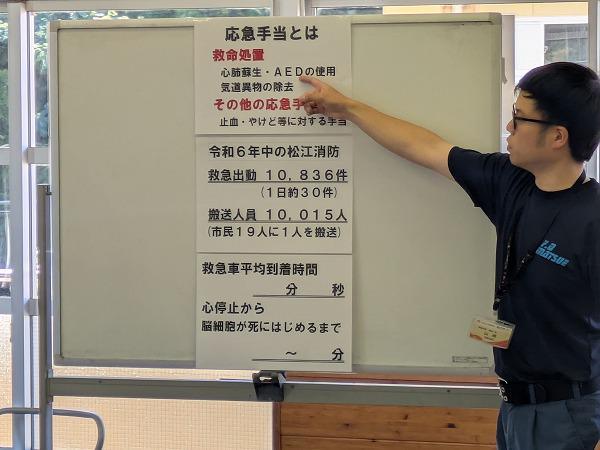 応急手当とは
救命処置
心肺蘇生・ＡＥＤの使用
気道異物の除去
その他の応急手
止血・やけど等に対する手当
令和６年中の松江消防
救急出動 １０，８３６件
（１日約３０件）
搬送人員 １０，０１５人
（市民１９人に１人を搬送）
救急車平均到着時間
分　秒
心停止から
脳細胞が死にはじめるまで
～　分